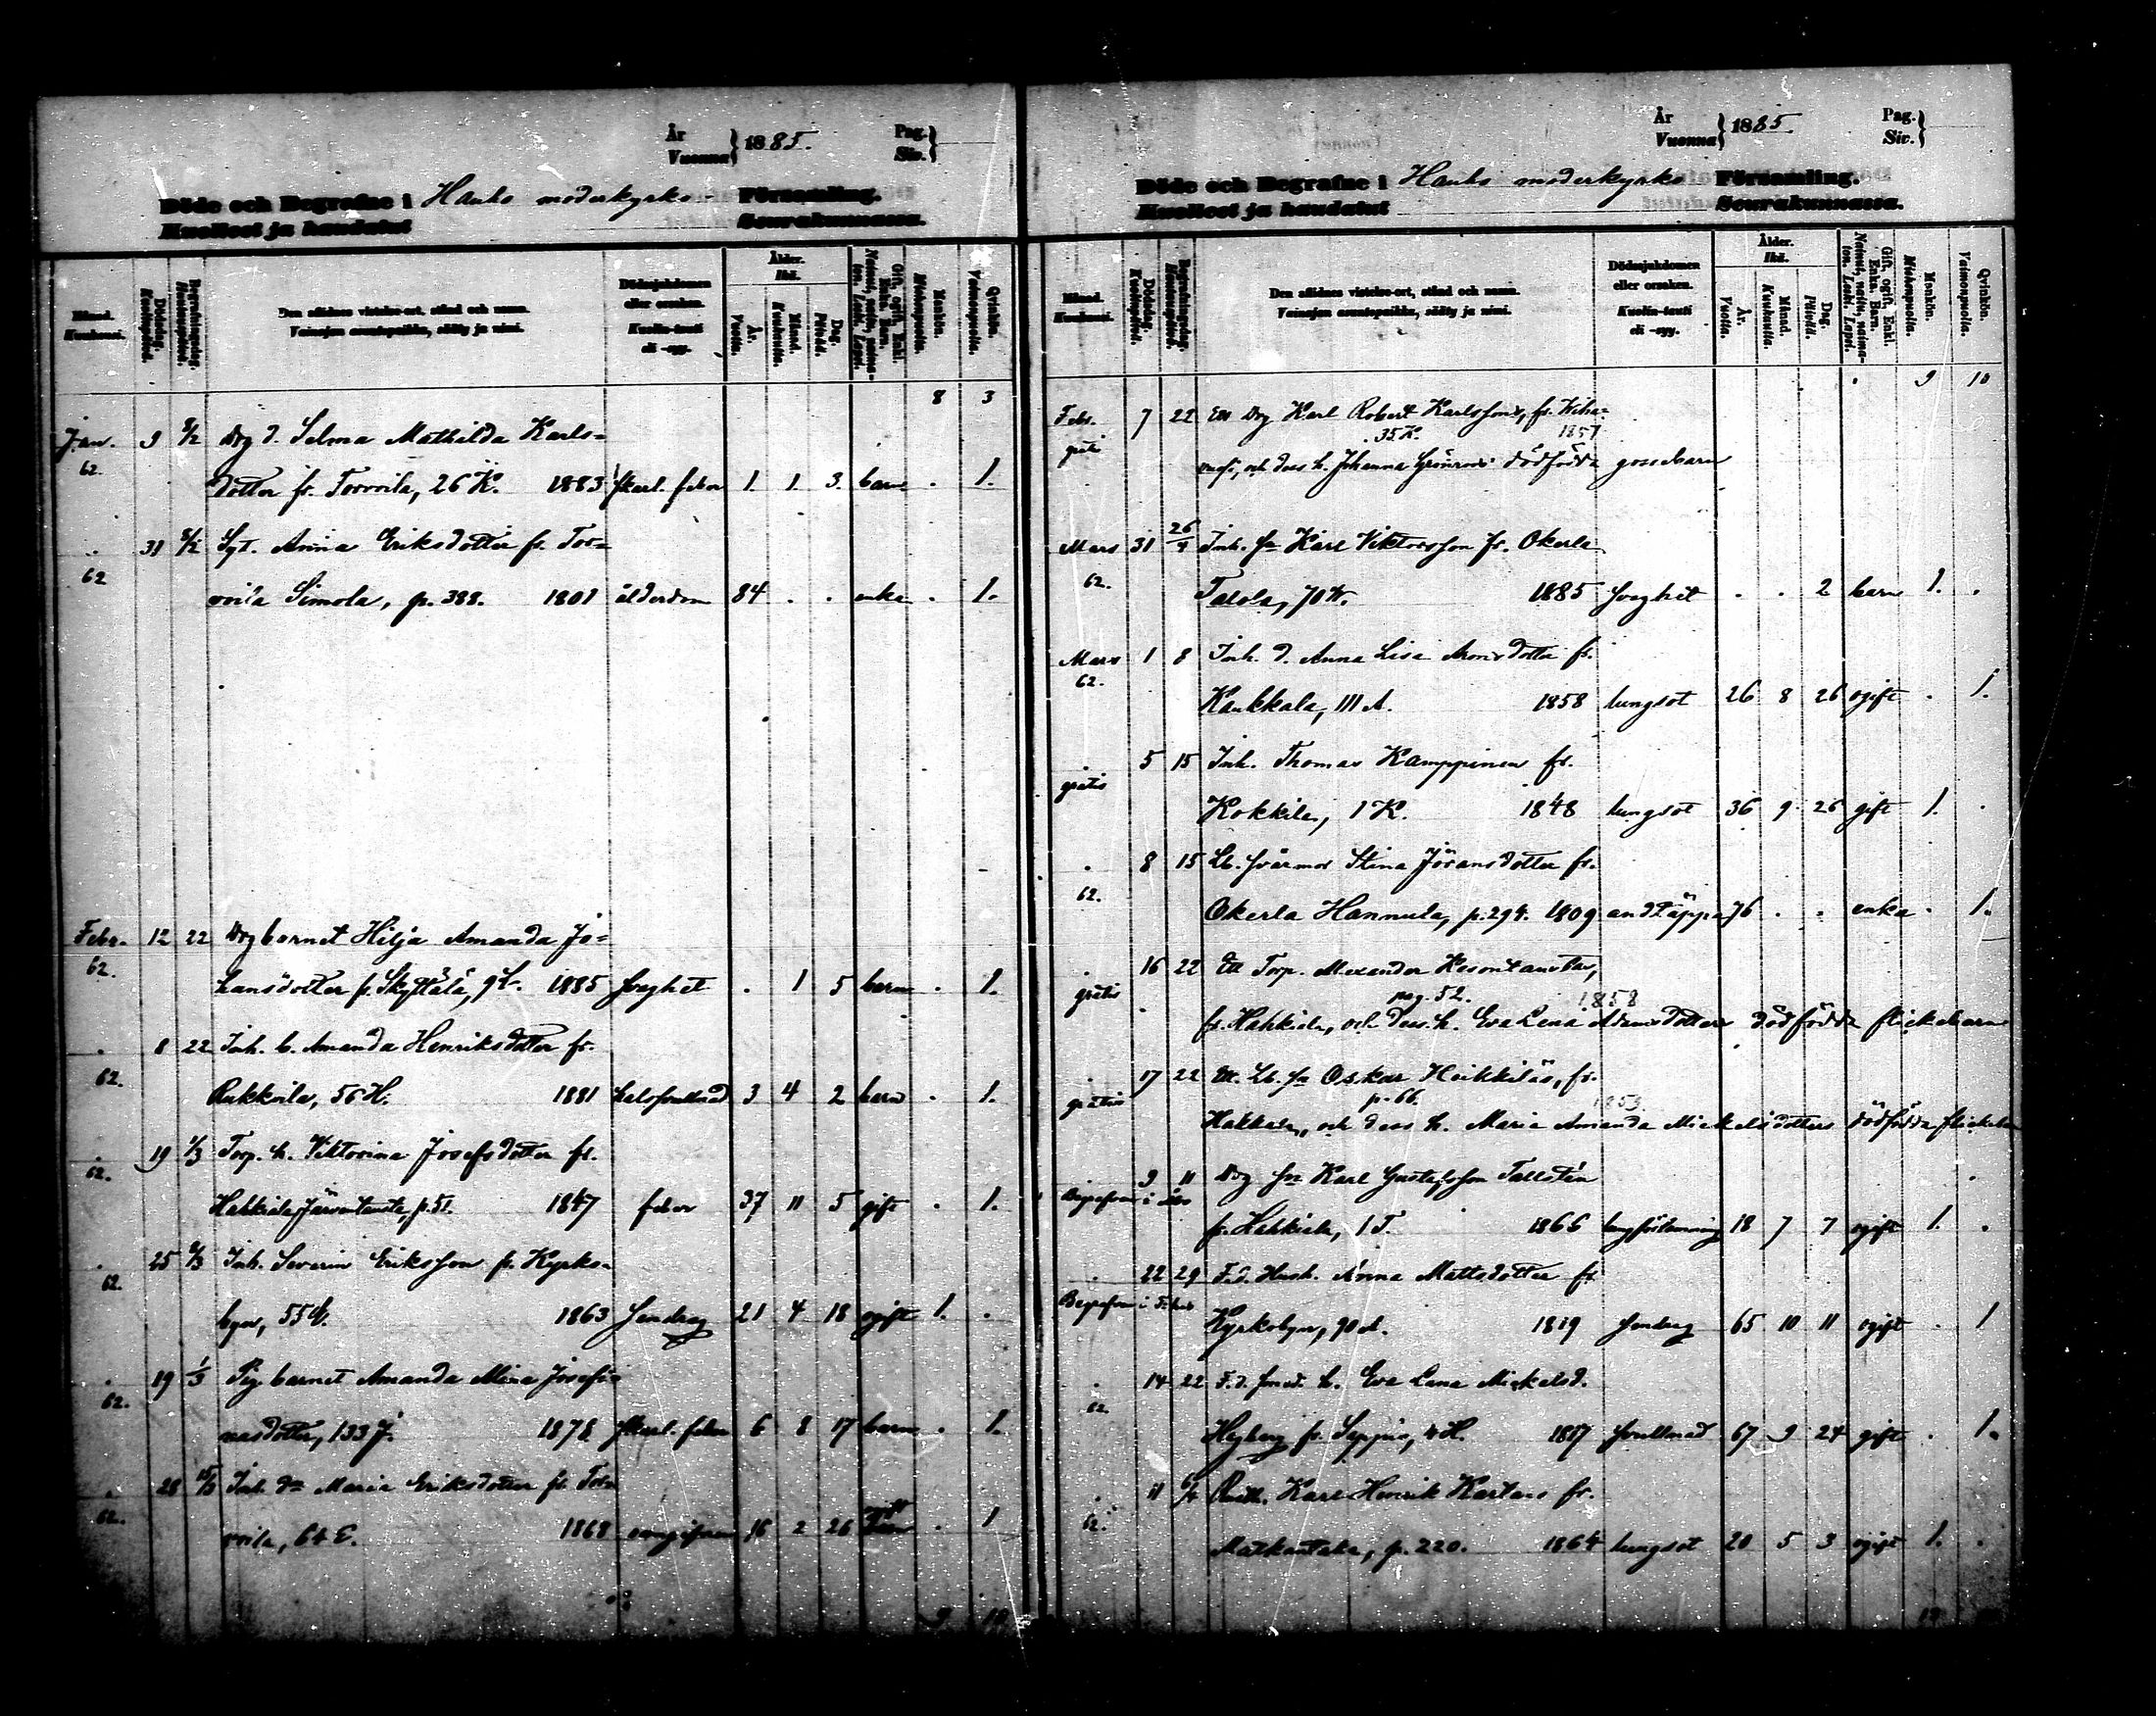 År
Vuonna } 1885.
Pag.
Siv. }
Döde och Begrafne i Hauho moderkyrko- Församling.
Kuolleet ja haudatut Seurakunnassa.
Månad. Kuukausi.
Dödsdag. Kuolinpäivä.
Begrafningsdag. Hautauspäivä.
Den aflidnes vistelse-ort, stånd och namn.
Vainajan asuntopaikka, sääty ja nimi.
Dödssjukdomen eller orsaken.
Kuolin-tauti eli -syy.
Ålder. Ikä.
År. Vuotta.
Månad. Kuukautta.
Dag. Päivää.
Gift, ogift, Enkl. Enka. Barn.
Mankön. Miehenpuolia.
Qvinkön. Vaimonpuolia.
8 3
Jan. 9 8/2 Drg d. Selma Mathilda Karls-
62. dotter fr. Torvoila, 26 K. 1883 skarl. feber 1. 1. 3. barn . 1.
31 8/2 Syt. Anna Eriksdotter fr. Tor-
62 voila Simola, p. 388. 1801 ålderdom 84 . . enka . 1.
Febr. 12 22 Drg barnet Hilja Amanda Jo-
62. hansdotter fr. Skyttälä, 9 L. 1885 svaghet . 1 5 barn . 1.
8 22 Inh. b. Amanda Henriksdotter fr.
62. Rukkoila, 56 H. 1881 halssvullnad 3 4 2 barn . 1.
19 1/3 Torp. h. Viktorina Josefsdotter fr.
62. Hahkiala Järventausta, p. 51. 1847 feber 37 11 5 gift . 1.
25 8/3 Inh. Severin Eriksson fr. Kyrko-
62. byn, 55 1863 sendrag 21 4 18 ogift 1. .
19 1/3 Pig. barnet Amanda Mina Josefi-
62. nasdotter, 133 J. 1878 skarl. feber 6 8 17 barn . 1.
28 15/3 Inh. dr Maria Eriksdotter fr. Tor-
62. voila, 64 E. 1868 16 2 26 . 1
9 10
År
Vuonna } 1885.
Pag.
Siv. }
Döde och Begrafne i Hauho moderkyrko Församling.
Kuolleet ja haudatut Seurakunnassa.
Månad. Kuukausi.
Dödsdag. Kuolinpäivä.
Begrafningsdag. Hautauspäivä.
Den aflidnes vistelse-ort, stånd och namn.
Vainajan asuntopaikka, sääty ja nimi.
Dödssjukdomen eller orsaken.
Kuolin-tauti eli -syy.
Ålder. Ikä.
År. Vuotta.
Månad. Kuukautta.
Dag. Päivää.
Gift, ogift, Enkl. Enka. Barn.
Mankön. Miehenpuolia.
Qvinkön. Vaimonpuolia.
9 10
Febr. 7 22 Ett Drg Karl Robert Karlssons, fr.
35 K. 1857
och dess h. Johanna Grönroos dödfödda gossebarn
Mars 31 26/4 Inh. sn Karl Viktorsson fr. Okerla
62. Talola, 70 1885 svaghet . . 2 barn 1. .
Mars 1 8 Inh. d. Anna Lisa Aronsdotter fr.
62. Kaukkala, 111 A. 1858 lungsot 26 8 26 ogift . 1.
5 15 Inh. Thomas Kamppinen fr.
gratis Kokkila, 1 K. 1848 lungsot 36 9 26 gift 1. .
8 15 Lb. svärmor Stina Göransdotter fr.
62. Okerla Hannula, p. 294. 1809 andtäppa 76 . . enka . 1.
16 22 Ett Torp. Alexander
pag. 52. 1858
gratis fr. Hahkiala, och dess h. Eva Lena Adamsdotters dödfödda flickebarn
17 22 Ett Lb. sn Oskar Heikkiläs, fr.
p. 66. 1853
gratis Hakkala, och dess h. Maria Amanda Mickelsdotters dödfödda flickeb
9 11 Drg sn Karl Gustafsson Tallstén
Begrafven i
fr. Hahkiala, 1 T. 1866 18 7 7 ogift 1. .
22 29 F.d. Hush. Anna Mattsdotter fr.
Begrafven i
Kyrkobyn, 90 A. 1819 sendrag 65 10 11 ogift . 1
14 22 F.d. smed. h. Eva Lena Mickelsd.
62 Hegberg fr. Seppis, 4 H. 1817 svullnad 67 9 24 gift . 1.
11 6/4 Karl Henrik Kartas fr.
62. Matkantaka, p. 220. 1864 lungsot 20 5 3 ogift 1. .